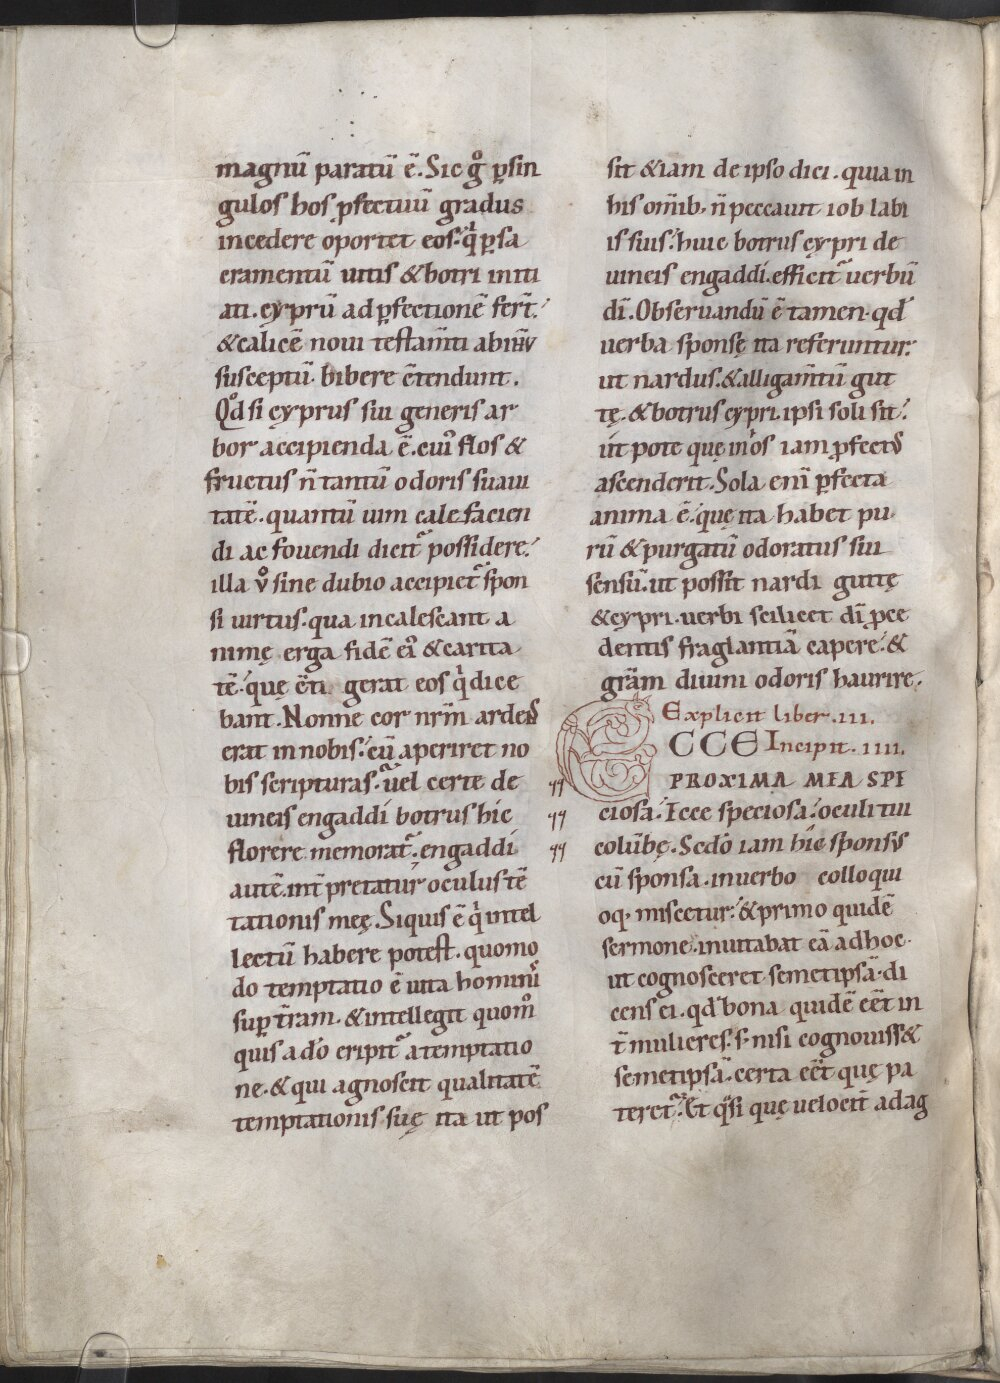 magnū paratū ē. Sic gͦ ꝑsin
gulos hos ꝓfectuū gradus
incedere oportet eos. qͥ ꝑ sa
cramentū uitis & botri initi
ati. cyprū ad ꝑfectionē fert᷑.
& calicē noui testam̄ti
susceptū. bibere c̄tendunt.
Qd̊ si cyprus sui generis ar
bor accipienda ē. cui᷒ flos &
fructus n̄ tantū odoris suaui
tatē. quantū uim calefacien
di ac fouendi dicit᷑ possidere.
illa ů sine dubio accipiet᷑ spon
si uirtus. qua incalescant a
nimę erga fidē ei᷒ & carita
tē. quę &̄i gerat eos qͥ dice
bant. Nonne cor nr̄m ardens
erat in nobis. cū aperiret no
bis scripturas. uel certe de
uineis engaddi botrus hic
florere memorat᷑. engaddi
autē. int̄pretatur oculus tē
tationis meę. Siquis ē qͥ intel
lectū habere potest. quomo
do temptatio ē uita hominū
suꝑ t̄ram. & intellegit quom̊
quis a dō eripit᷑ a temptatio
ne. & qui agnoscit qualitatē
temptationis suę ita ut pos
sit & iam de ipso dici. quia in
his om̄ib. n̄ peccauit iob labi
is suis. huic botrus cypri de
uineis engaddi. efficit᷑ uerbū
dī. Obseruandū ē tamen. qd̄
uerba sponsę ita referuntur.
ut nardus. & alligam̄tū gut
tę. & botrus cypri. ipsi soli sit.
ut pote quę in hos iam ꝓfect᷒
ascenderit. Sola enī ꝑfecta
anima ē. quę ita habet pu
rū & purgatū odoratus sui
sensū. ut possit nardi guttę
& cypri. uerbi scilicet dī ꝓce
dentis fraglantiā capere. &
gr̄am diuini odoris haurire.
Explicit liber. III.
ECCE Incipit. IIII.
PROXIMA MEA SPE
ciosa. Ecce speciosa. oculi tui
colūbę. Sedo iam hic sponsus
cū sponsa. in uerbo colloqui
oq. miscetur. & primo quidē
sermone. inuitabat eā ad hoc.
ut cognosceret semetipsā. di
cens ei. qd̄ bona quidē eēt in
t̄ mulieres. s. nisi cognouiss&
semetipsā. certa eēt quę pa
teret᷑. Et qͣsi quę uelocit̄ ad ag